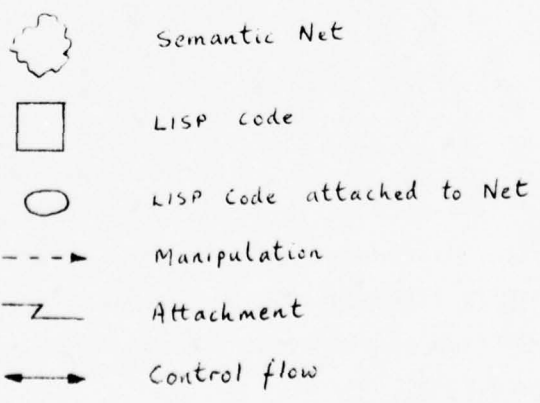 Semantic Net
LISP Code
LISP Code attached to Net
Manipulation
Attachment
Control flow